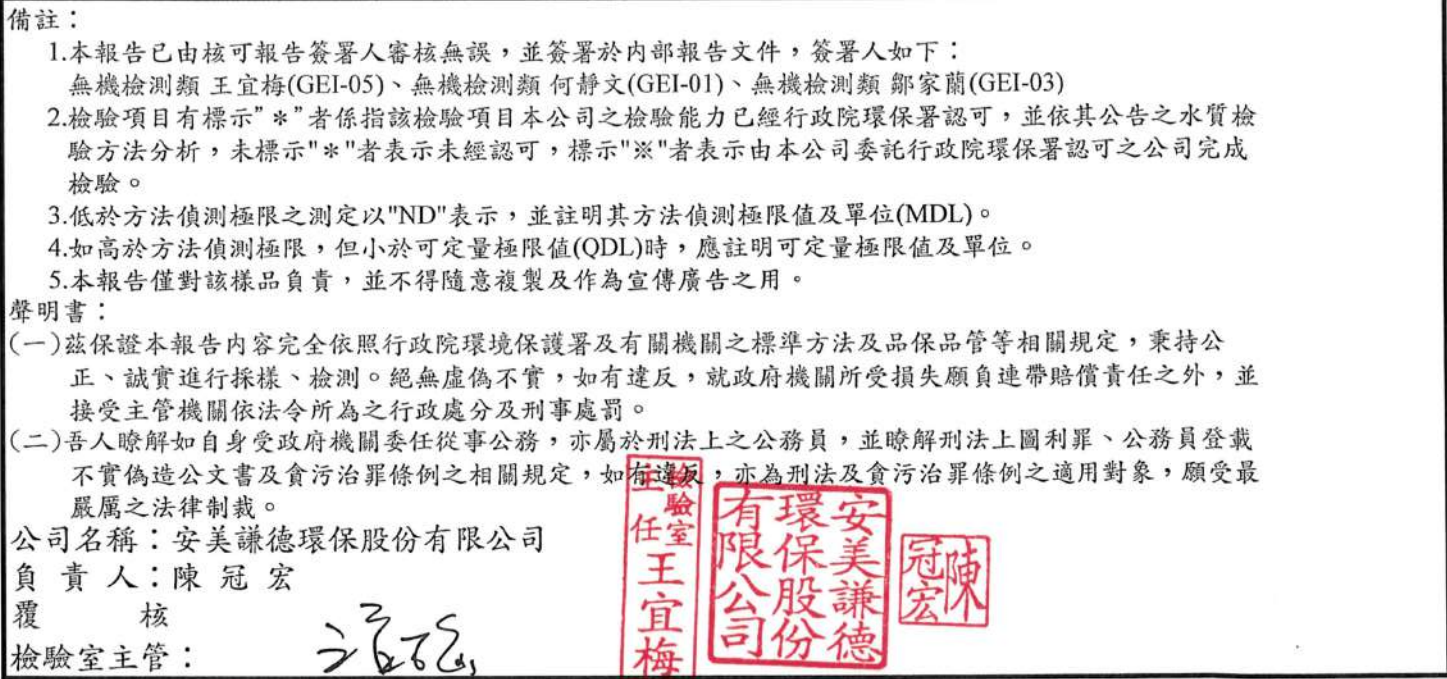 備註：
1.本報告已由核可報告簽署人審核無誤，並簽署於內部報告文件，簽署人如下：
無機檢測類 王宜梅(GEI-05)、無機檢測類 何靜文(GEI-01)、無機檢測類 鄒家蘭(GEI-03)
2.檢驗項目有標示"＊"者係指該檢驗項目本公司之檢驗能力已經行政院環保署認可，並依其公告之水質檢
驗方法分析，未標示"＊"者表示未經認可，標示"※"者表示由本公司委託行政院環保署認可之公司完成
檢驗。
3.低於方法偵測極限之測定以"ND"表示，並註明其方法偵測極限值及單位(MDL)。
4.如高於方法偵測極限，但小於可定量極限值(QDL)時，應註明可定量極限值及單位。
5.本報告僅對該樣品負責，並不得隨意複製及作為宣傳廣告之用。
聲明書：
(一)茲保證本報告內容完全依照行政院環境保護署及有關機關之標準方法及品保品管等相關規定，秉持公
正、誠實進行採樣、檢測。絕無虛偽不實，如有違反，就政府機關所受損失願負連帶賠償責任之外，並
接受主管機關依法令所為之行政處分及刑事處罰。
(二)吾人瞭解如自身受政府機關委任從事公務，亦屬於刑法上之公務員，並瞭解刑法上圖利罪、公務員登載
不實偽造公文書及貪污治罪條例之相關規定，如有違反，亦為刑法及貪污治罪條例之適用對象，願受最
嚴厲之法律制裁。
公司名稱：安美謙德環保股份有限公司
負責人：陳冠宏
覆核
檢驗室主管：
檢驗室
主任
王宜梅
安美謙德
環保股份
有限公司
陳
冠宏